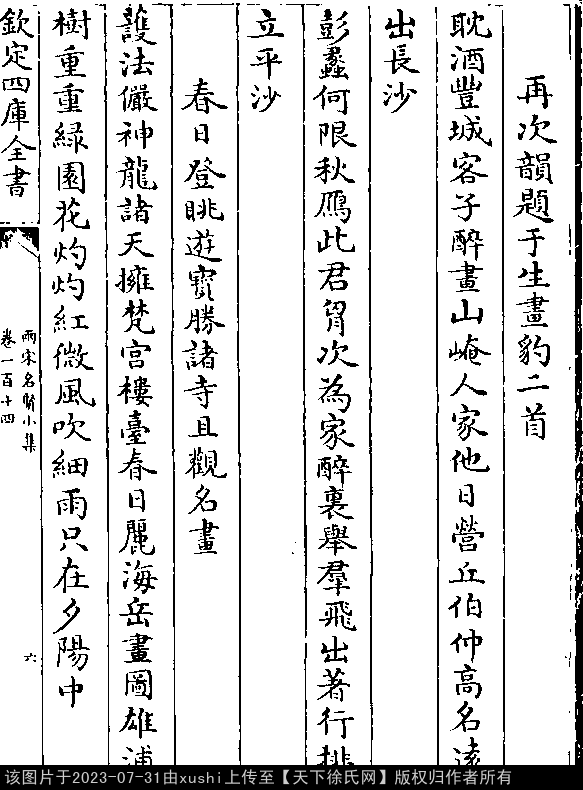 再次韻題于生畫豹二首
耽酒豐城客子醉畫山崦人家他日營丘伯仲高名遠
出長沙
彭蠡何限秋鴈此君胷次為家醉裏舉羣飛出著行排
立平沙
春日登眺遊寳勝諸寺且觀名畫
䕶法儼神龍諸天擁梵宫樓臺春日麗海岳畫圖雄浦
樹重重緑園花灼灼紅微風吹細雨只在夕陽中
欽定四庫全書
兩宋名賢小集
卷一百十四
六
该图片于2023-07-31由xushi上传至【天下徐氏网】版权归作者所有